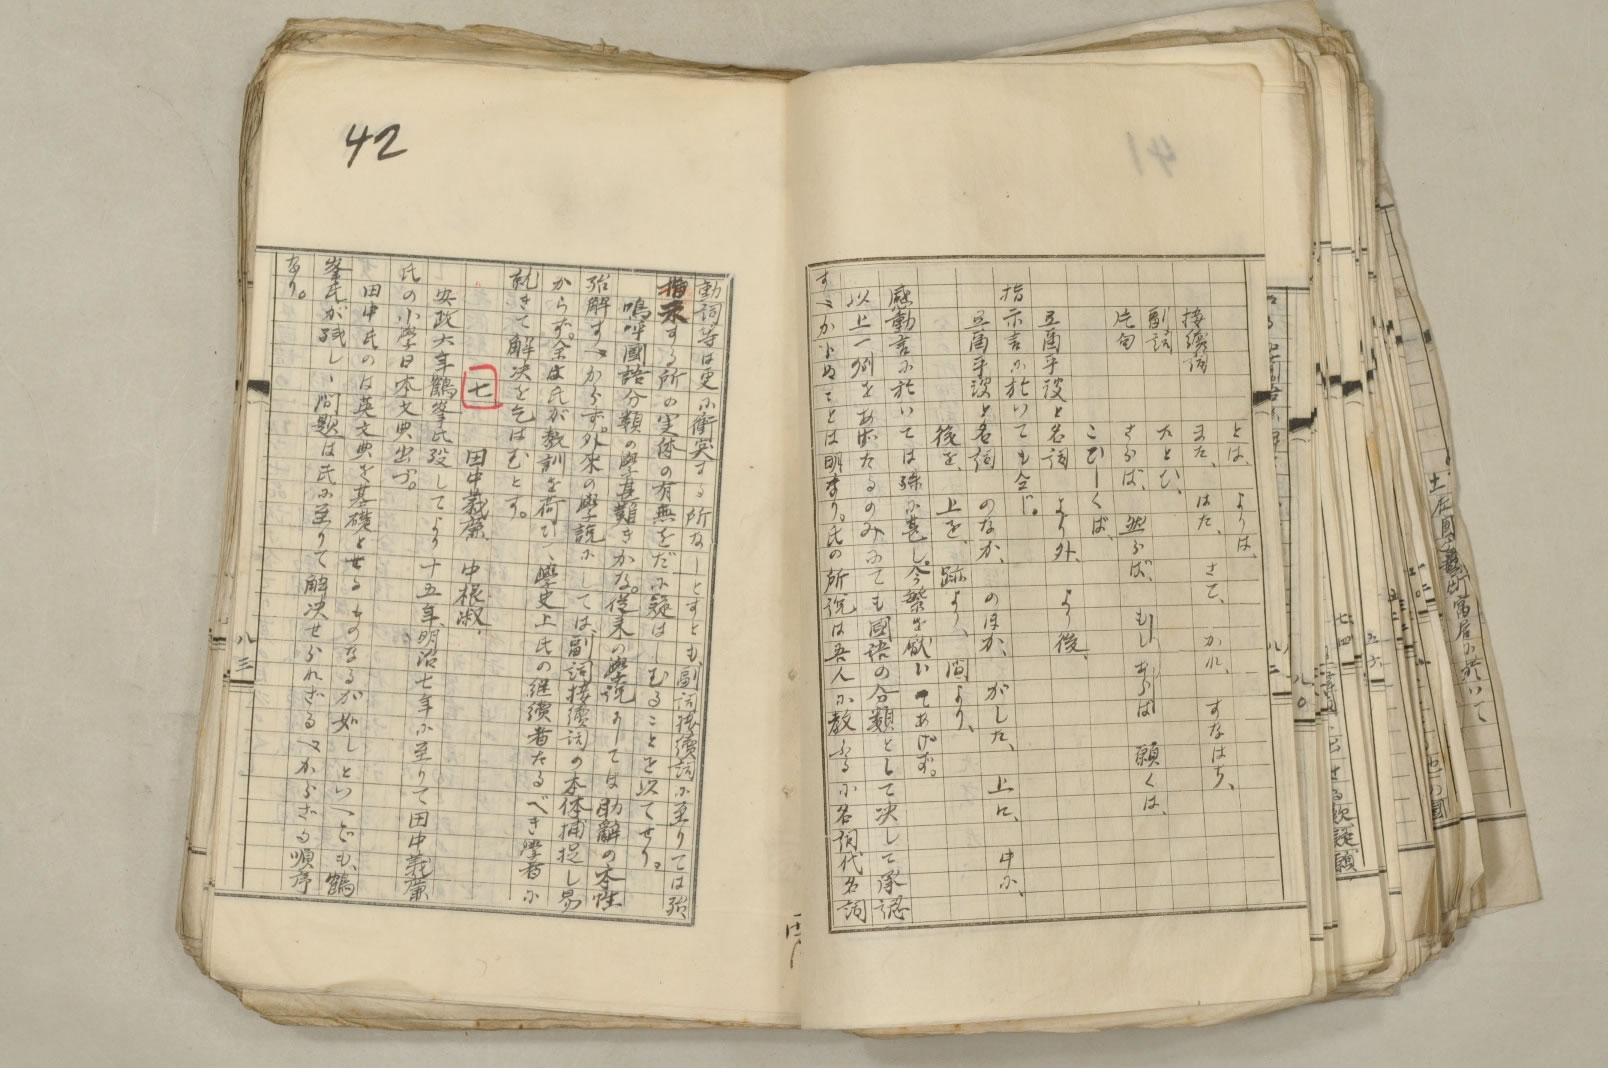 41
とは、よりは、
接續詞 また、はた、さて、かれ、すなはち、
副詞 たとひ、
片句 さらば、然らば、もしあらば 願くは、
こひしくば、
豆爾乎波と名詞 より外、より後、
指示言に於いても今じ。
豆爾乎波と名詞 のなか、のほか、がした、上に、中に、
後を、上を、跡より、間より、
感動言に於いては殊に甚し。今繁を厭いてあげず。
以上一例をあげたるのみにても國語の分類として决して承認
すべからぬことは明なり。氏の所説は吾人に教ふるに名詞代名詞
42
動詞等は更に衝突する所なしとすとも、副詞接續詞に至りては殆
指示する所の実体の有無をだに疑はしむることを以てせり。
嗚呼國語分類の學甚難きかな。從来の學説にしては助辭の本性
殆解すべからず。外来の學説にしては、副詞接續詞の本体捕捉し易
からず。余は氏が教訓を荷ひ、學史上氏の継續者たるべき學者に
就きて解决を乞はむとす。
七 田中義廉、中根淑、
安政六年鶴峯氏歿してより十五年明治七年に至りて田中義廉
氏の小學日本文典出づ。
田中氏のは英文典を基礎とせるものなるが如しといへども、鶴
峯氏が殘しゝ問題は氏に至りて解决せられざるべからざる順序
なり。
八三
八二
八〇
七四